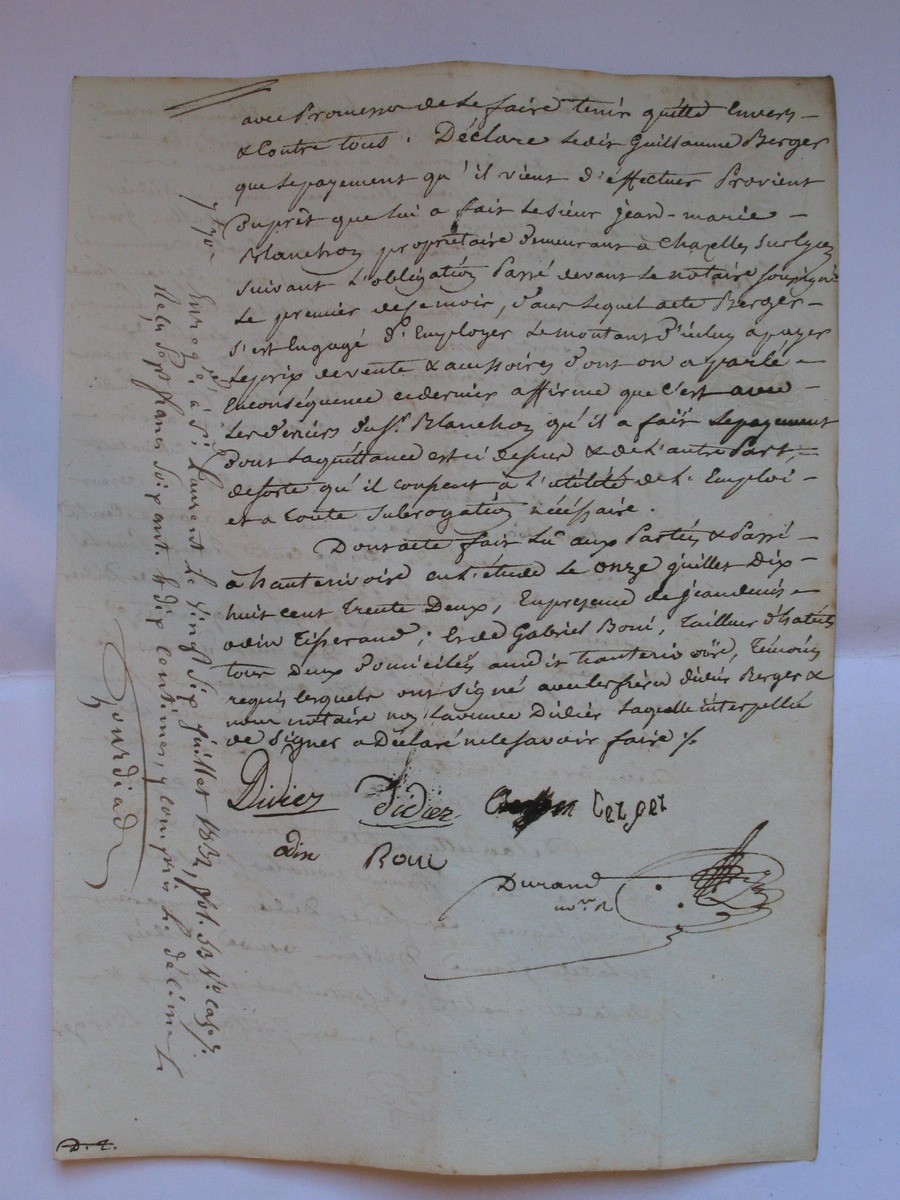 avec Promesse de le faire tenir quitte Envers
& Contre tous. Déclare ledit Guillaume Berger
que le payement qu'il vient d'effectuer Provient
Du prêt que lui a fait le sieur jean-marie
Blanchon propriétaire demeurant à Chazelles sur Lyon
suivant l'obligation Passé devant le notaire soussigné
Le premier de ce mois, dans lequel acte Berger
s'est Engagé d'Employer le montant d'icelui a payer
Le prix de vente & accessoires dont on a parlé
En conséquence ce dernier affirme que c'est avec
Les deniers du sr. Blanchon qu'il a fait le payement
dont la quittance est ci dessus & de l'autre Part
de sorte qu'il consent à l'utilité de l'Emploi
et a toute subrogation nécéssaire.
Dont acte fait Lu aux Parties & Passé
à hauterivoire en l'étude Le onze juillet Dix
huit cent trente Deux, En présence de jean denis
odin Tisserand; Et de Gabriel Boni, Tailleur d'habits
tous deux domiciliés audit hauterivoire, Témoins
requis lesquels ont signé avec les frères didier Berger &
nous notaire non la veuve Didier Laquelle interpellée
de signer a Déclaré ne le savoir faire ./.
Didier Didier Berger
odin Boni
Durand
nore
7f 70c
Enregé à St Laurent le vingt six juillet 1832, fol. 52 Vo Case 7.
Reçu sept francs soixante & dix centimes, y compris le décime
Gourdiad
D. L.